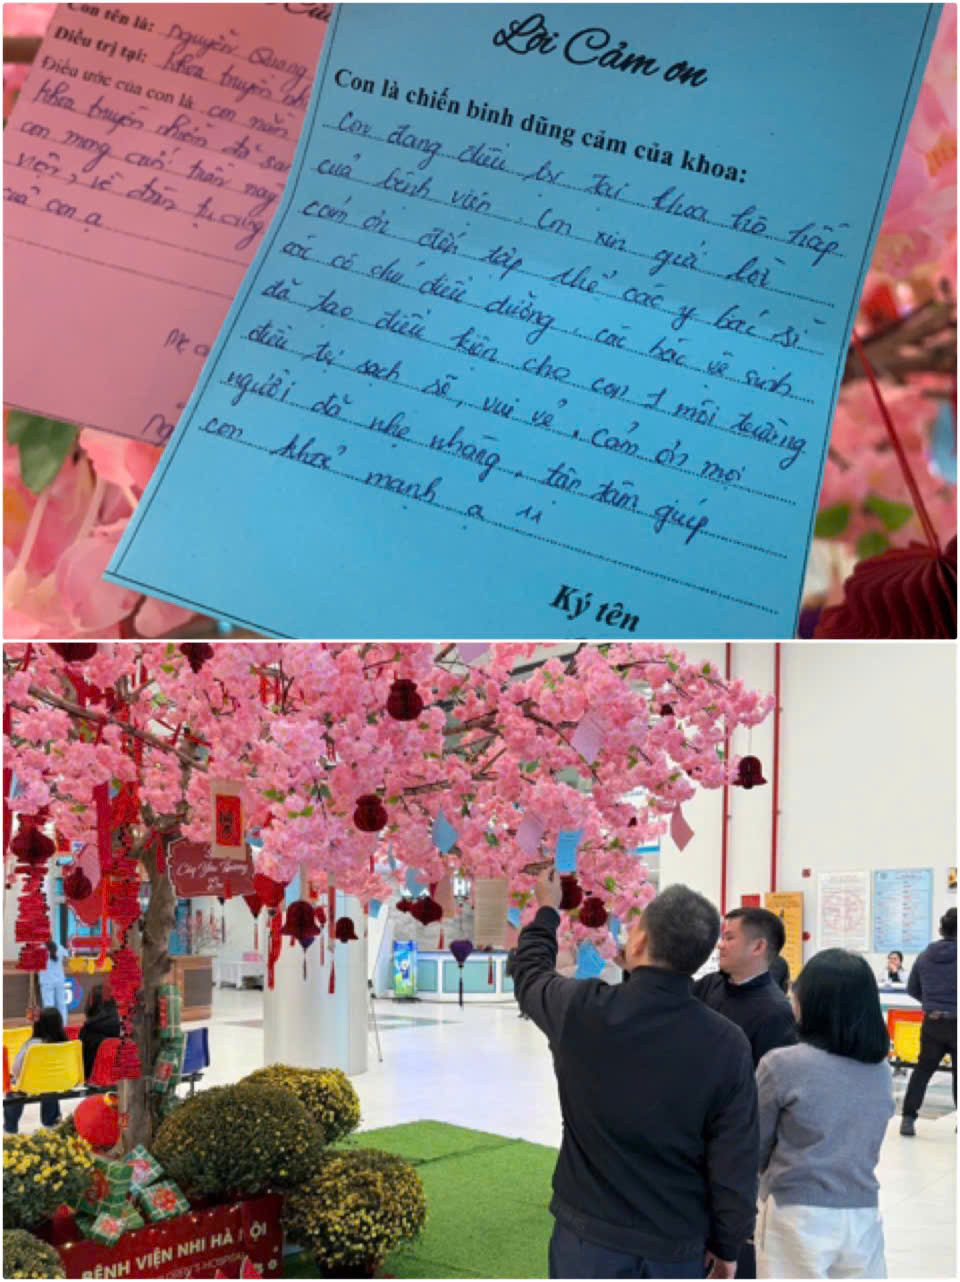 Con tên là: Nguyễn Quang
Điều trị tại: khoa truyền nh
Điều ước của con là: con nằm
khoa truyền nhiễm đã
con mong
viện, về
của con ạ
Lời Cảm ơn
Con là chiến binh dũng cảm của khoa:
Con đang điều trị tại khoa hô hấp
của bệnh viện. Con xin gửi lời
cảm ơn đến tập thể các y bác sĩ
các cô chú điều dưỡng, các bác vệ sinh
đã tạo điều kiện cho con 1 môi trường
điều trị sạch sẽ, vui vẻ. Cảm ơn mọi
người đã nhẹ nhàng, tận tâm giúp
con khoẻ mạnh ạ !!
Ký tên
Cây Yêu Thương
BỆNH VIỆN NHI HÀ NỘI